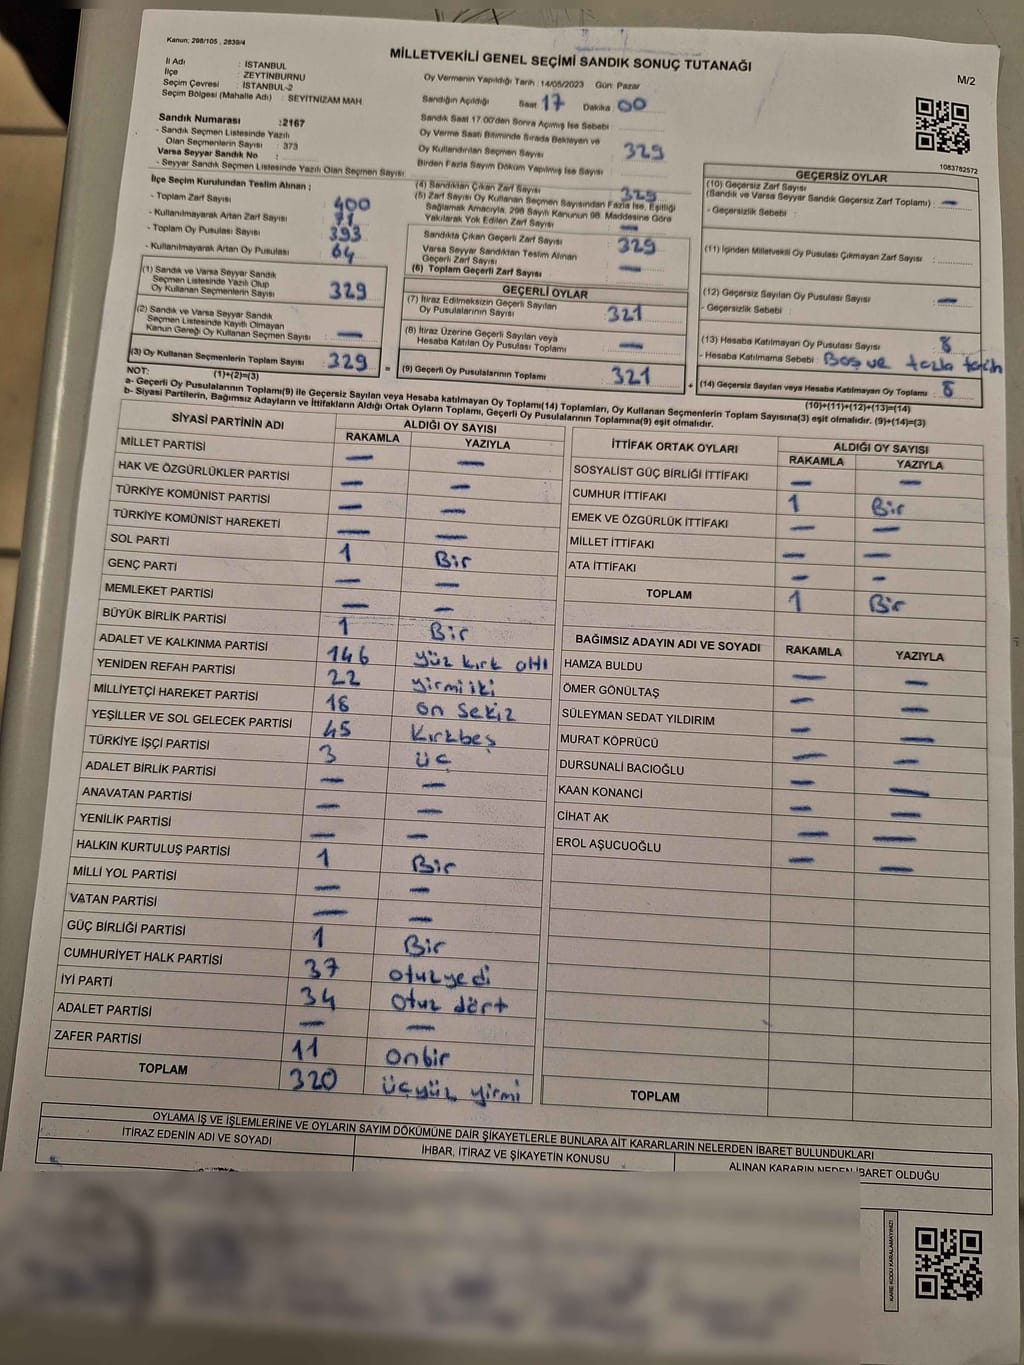 Kanun; 298/105 , 2839/4
MİLLETVEKİLİ GENEL SEÇİMİ SANDIK SONUÇ TUTANAĞI
M/2
İl Adı : İSTANBUL
İlçe : ZEYTİNBURNU
Seçim Çevresi : İSTANBUL-2
Seçim Bölgesi (Mahalle Adı) : SEYİTNİZAM MAH.
Oy Vermenin Yapıldığı Tarih : 14/05/2023 Gün: Pazar
Sandığın Açıldığı Saat 17 Dakika 00
Sandık Saat 17.00'den Sonra Açılmış İse Sebebi :
Oy Verme Saati Bitiminde Sırada Bekleyen ve
Oy Kullandırılan Seçmen Sayısı : 329
Birden Fazla Sayım Döküm Yapılmış İse Sayısı :
Sandık Numarası :2167
- Sandık Seçmen Listesinde Yazılı
Olan Seçmenlerin Sayısı : 373
Varsa Seyyar Sandık No :
- Seyyar Sandık Seçmen Listesinde Yazılı Olan Seçmen Sayısı
1083782572
İlçe Seçim Kurulundan Teslim Alınan ;
- Toplam Zarf Sayısı : 400
- Kullanılmayarak Artan Zarf Sayısı : 71
- Toplam Oy Pusulası Sayısı : 393
- Kullanılmayarak Artan Oy Pusulası : 64
(1) Sandık ve Varsa Seyyar Sandık
Seçmen Listesinde Yazılı Olup
Oy Kullanan Seçmenlerin Sayısı : 329
(2) Sandık ve Varsa Seyyar Sandık
Seçmen Listesinde Kayıtlı Olmayan
Kanun Gereği Oy Kullanan Seçmen Sayısı : —
(3) Oy Kullanan Seçmenlerin Toplam Sayısı : 329 =
(1)+(2)=(3)
(4) Sandıktan Çıkan Zarf Sayısı : 329
(5) Zarf Sayısı Oy Kullanan Seçmen Sayısından Fazla İse, Eşitliği
Sağlamak Amacıyla, 298 Sayılı Kanunun 98. Maddesine Göre
Yakılarak Yok Edilen Zarf Sayısı : —
Sandıkta Çıkan Geçerli Zarf Sayısı : 329
Varsa Seyyar Sandıktan Teslim Alınan
Geçerli Zarf Sayısı :
(6) Toplam Geçerli Zarf Sayısı : —
GEÇERLİ OYLAR
(7) İtiraz Edilmeksizin Geçerli Sayılan
Oy Pusulalarının Sayısı : 321
(8) İtiraz Üzerine Geçerli Sayılan veya
Hesaba Katılan Oy Pusulası Toplamı : —
(9) Geçerli Oy Pusulalarının Toplamı : 321 +
GEÇERSİZ OYLAR
(10) Geçersiz Zarf Sayısı
(Sandık ve Varsa Seyyar Sandık Geçersiz Zarf Toplamı) : —
- Geçersizlik Sebebi :
(11) İçinden Milletvekili Oy Pusulası Çıkmayan Zarf Sayısı :
(12) Geçersiz Sayılan Oy Pusulası Sayısı : —
- Geçersizlik Sebebi :
(13) Hesaba Katılmayan Oy Pusulası Sayısı : 8
- Hesaba Katılmama Sebebi : Boş ve fazla tercih
(14) Geçersiz Sayılan veya Hesaba Katılmayan Oy Toplamı : 8
(10)+(11)+(12)+(13)=(14)
NOT:
a- Geçerli Oy Pusulalarının Toplamı(9) ile Geçersiz Sayılan veya Hesaba katılmayan Oy Toplamı(14) Toplamları, Oy Kullanan Seçmenlerin Toplam Sayısına(3) eşit olmalıdır. (9)+(14)=(3)
b- Siyasi Partilerin, Bağımsız Adayların ve İttifakların Aldığı Ortak Oyların Toplamı, Geçerli Oy Pusulalarının Toplamına(9) eşit olmalıdır.
SİYASİ PARTİNİN ADI ALDIĞI OY SAYISI
RAKAMLA YAZIYLA
MİLLET PARTİSİ — —
HAK VE ÖZGÜRLÜKLER PARTİSİ — —
TÜRKİYE KOMÜNİST PARTİSİ — —
TÜRKİYE KOMÜNİST HAREKETİ — —
SOL PARTİ 1 Bir
GENÇ PARTİ — —
MEMLEKET PARTİSİ — —
BÜYÜK BİRLİK PARTİSİ 1 Bir
ADALET VE KALKINMA PARTİSİ 146 yüz kırk altı
YENİDEN REFAH PARTİSİ 22 yirmi iki
MİLLİYETÇİ HAREKET PARTİSİ 18 on sekiz
YEŞİLLER VE SOL GELECEK PARTİSİ 45 Kırkbeş
TÜRKİYE İŞÇİ PARTİSİ 3 üç
ADALET BİRLİK PARTİSİ — —
ANAVATAN PARTİSİ — —
YENİLİK PARTİSİ — —
HALKIN KURTULUŞ PARTİSİ 1 Bir
MİLLİ YOL PARTİSİ — —
VATAN PARTİSİ — —
GÜÇ BİRLİĞİ PARTİSİ 1 Bir
CUMHURİYET HALK PARTİSİ 37 otuzyedi
İYİ PARTİ 34 otuz dört
ADALET PARTİSİ — —
ZAFER PARTİSİ 11 onbir
TOPLAM 320 üçyüz yirmi
İTTİFAK ORTAK OYLARI ALDIĞI OY SAYISI
RAKAMLA YAZIYLA
SOSYALİST GÜÇ BİRLİĞİ İTTİFAKI — —
CUMHUR İTTİFAKI 1 Bir
EMEK VE ÖZGÜRLÜK İTTİFAKI — —
MİLLET İTTİFAKI — —
ATA İTTİFAKI — —
TOPLAM 1 Bir
BAĞIMSIZ ADAYIN ADI VE SOYADI RAKAMLA YAZIYLA
HAMZA BULDU — —
ÖMER GÖNÜLTAŞ — —
SÜLEYMAN SEDAT YILDIRIM — —
MURAT KÖPRÜCÜ — —
DURSUNALİ BACIOĞLU — —
KAAN KONANCİ — —
CİHAT AK — —
EROL AŞUCUOĞLU — —
TOPLAM
OYLAMA İŞ VE İŞLEMLERİNE VE OYLARIN SAYIM DÖKÜMÜNE DAİR ŞİKAYETLERLE BUNLARA AİT KARARLARIN NELERDEN İBARET BULUNDUKLARI
İTİRAZ EDENİN ADI VE SOYADI İHBAR, İTİRAZ VE ŞİKAYETİN KONUSU ALINAN KARARIN NEDEN İBARET OLDUĞU
KARE KODU KARALAMAYINIZ!